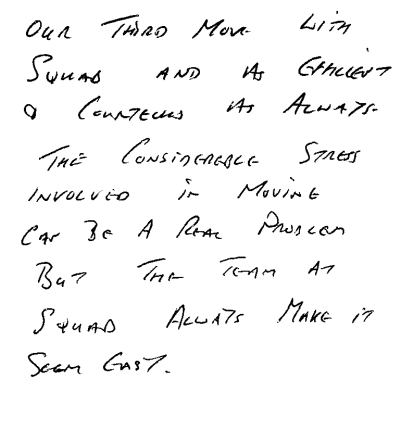 OUR THIRD MOVE WITH
SQUAB AND AS EFFICIENT
& COURTEOUS AS ALWAYS.
THE CONSIDERABLE STRESS
INVOLVED IN MOVING
CAN BE A REAL PROBLEM
BUT THE TEAM AT
SQUAB ALWAYS MAKE IT
SEEM EASY.